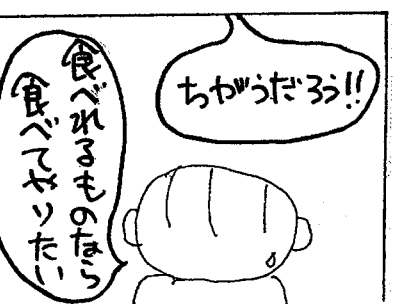 ちがうだろう!!
食べれるものなら
食べてやりたい